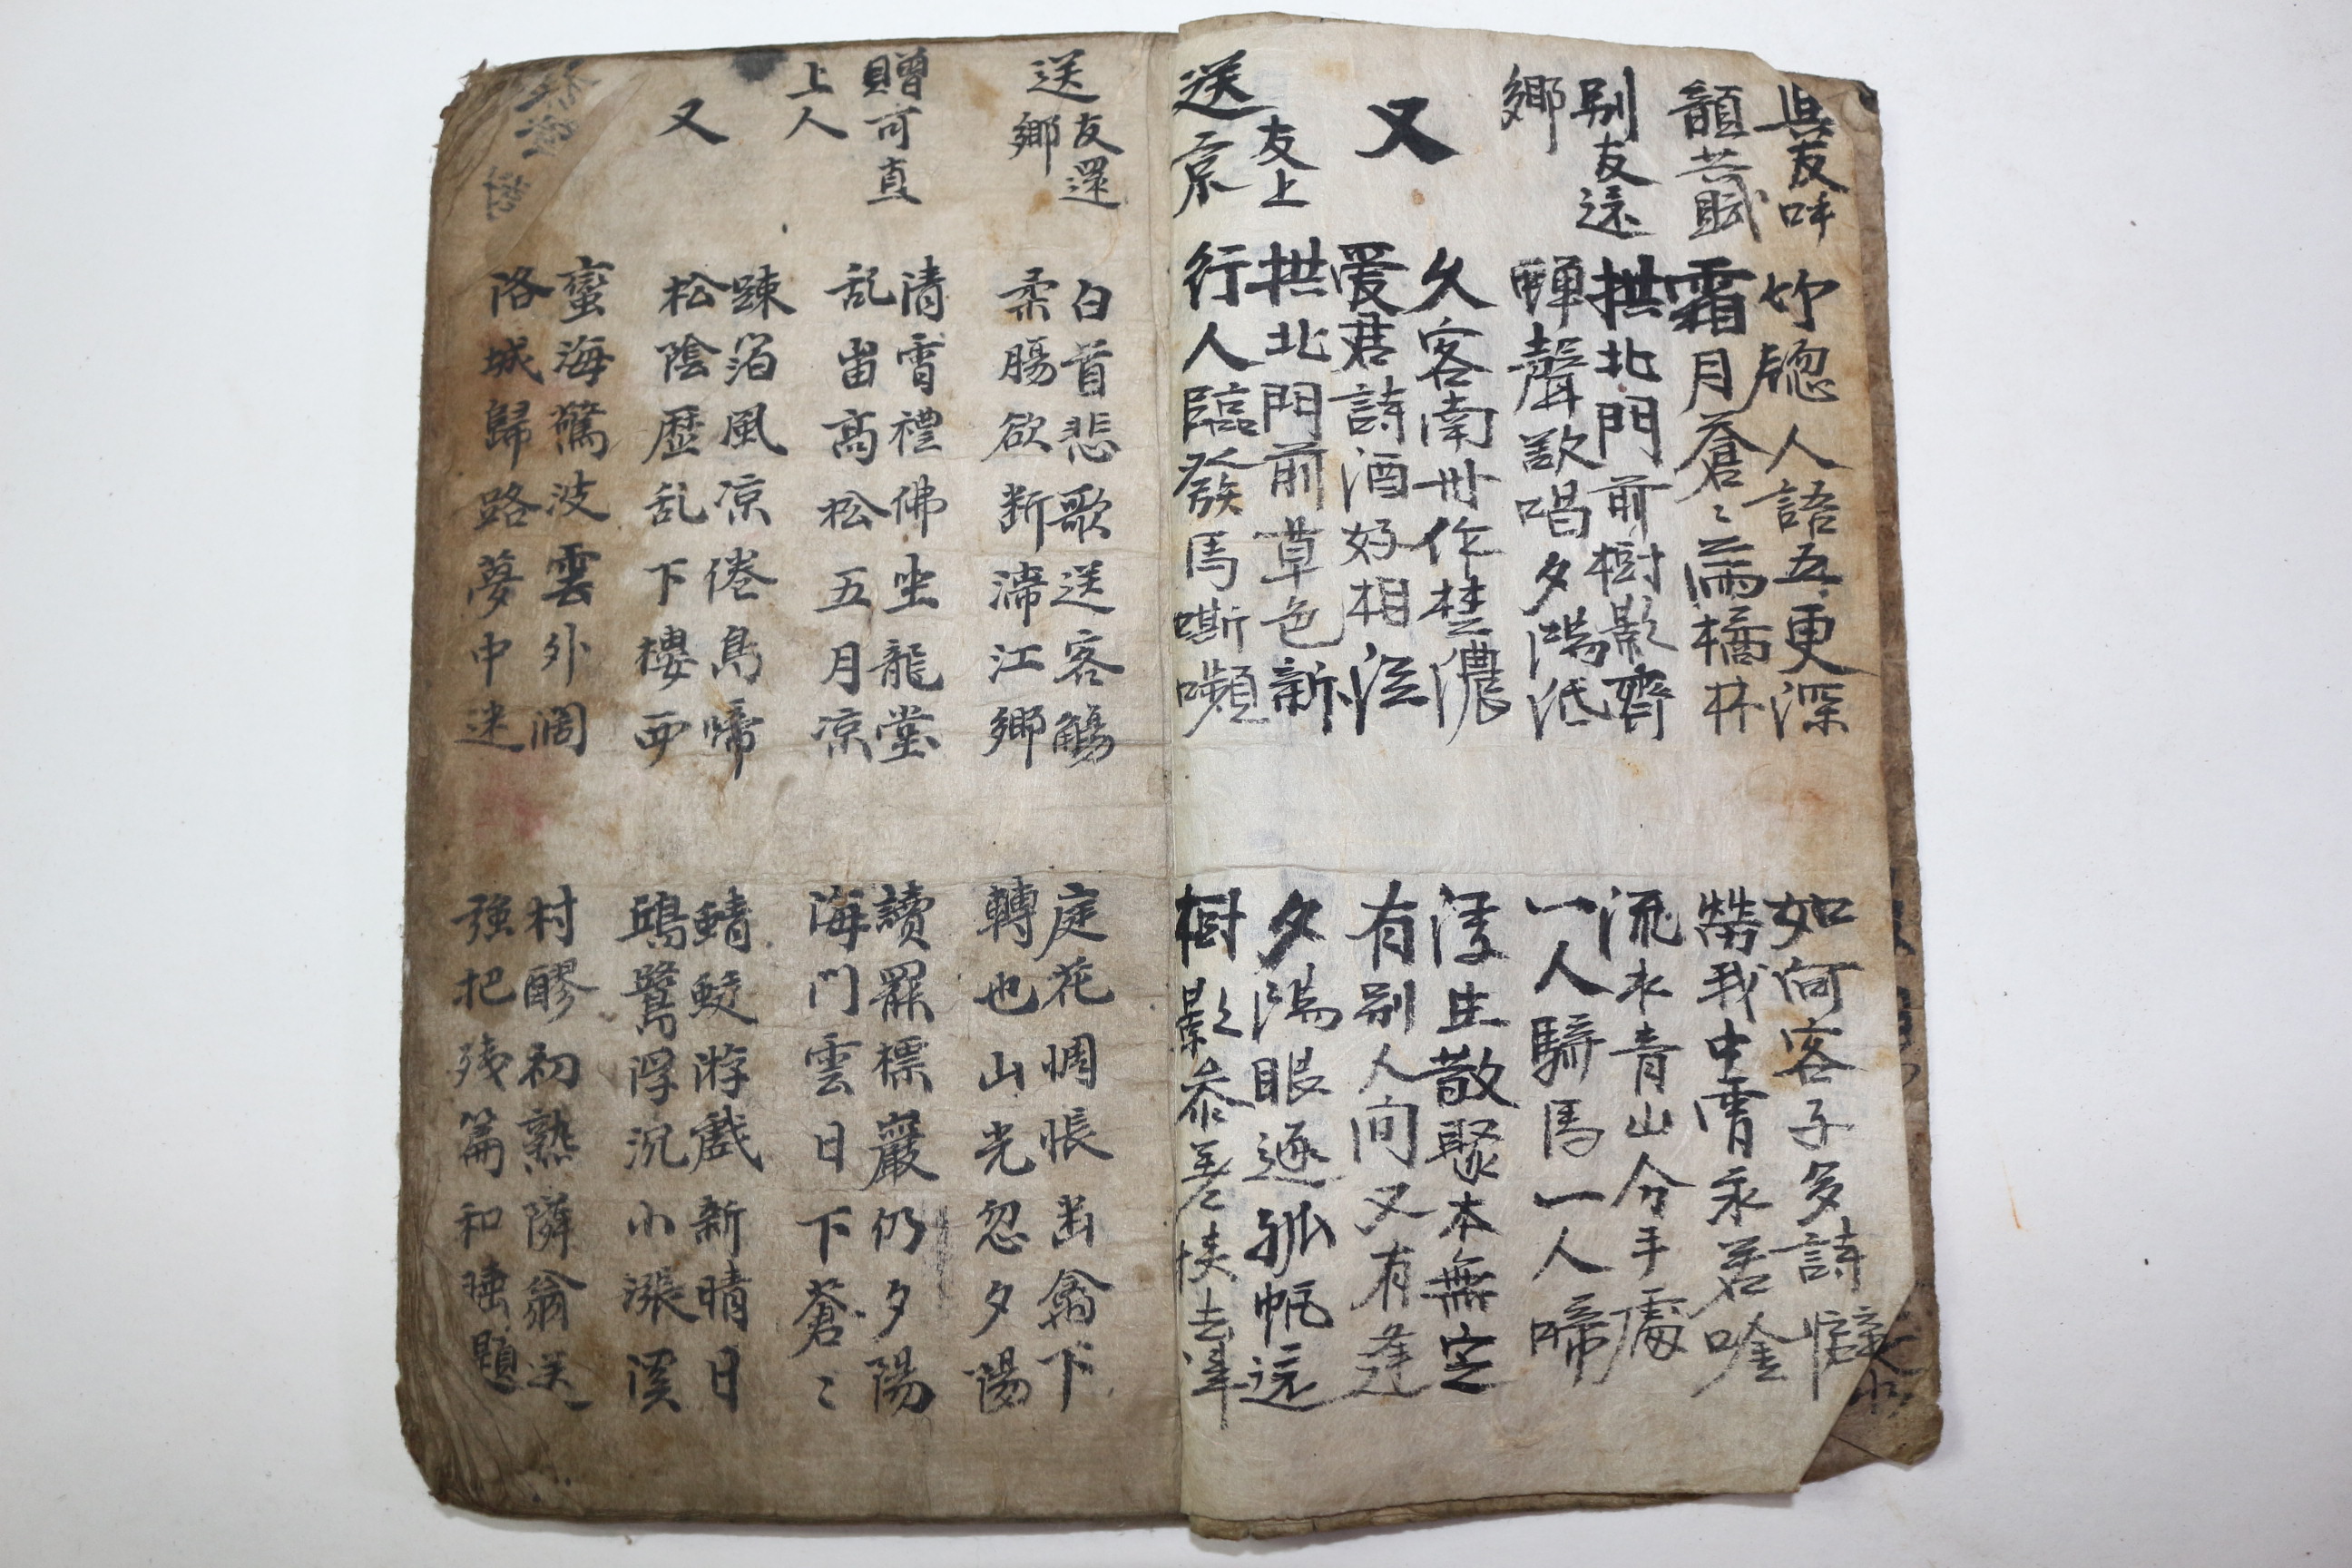 與友呼
韻共賦
妙牕人語五更深
霜月蒼〻滿橘林
如何客子多詩癖
勞我中宵永若唫
別友還
鄉
拱北門前樹影齊
蟬聲歇唱夕陽低
流水青山分手處
一人騎馬一人啼
又
久客南州作楚濃
爱君詩酒好相從
浮生散聚本無定
有別人间又有逢
送友上
京
拱北門前草色新
行人臨發馬嘶嚬
夕陽眼逐孤帆远
樹影参差挟去津
送友還
鄉
白首悲歌送客觴
柔腸欲断滯江鄉
庭花惆悵出禽下
轉也山光忽夕陽
贈可真
上人
清宵禮佛坐龍堂
乱峀高松五月凉
讀罷標嚴仍夕陽
海門雲日下蒼〻
又
踈箔風凉倦鳥啼
松陰歷乱下樓西
蜻蜓游戲新晴日
鷗鷺浮沉小漲溪
蠻海驚波雲外闊
洛城歸路夢中迷
村醪初熟隣翁送
強把残篇和睡題